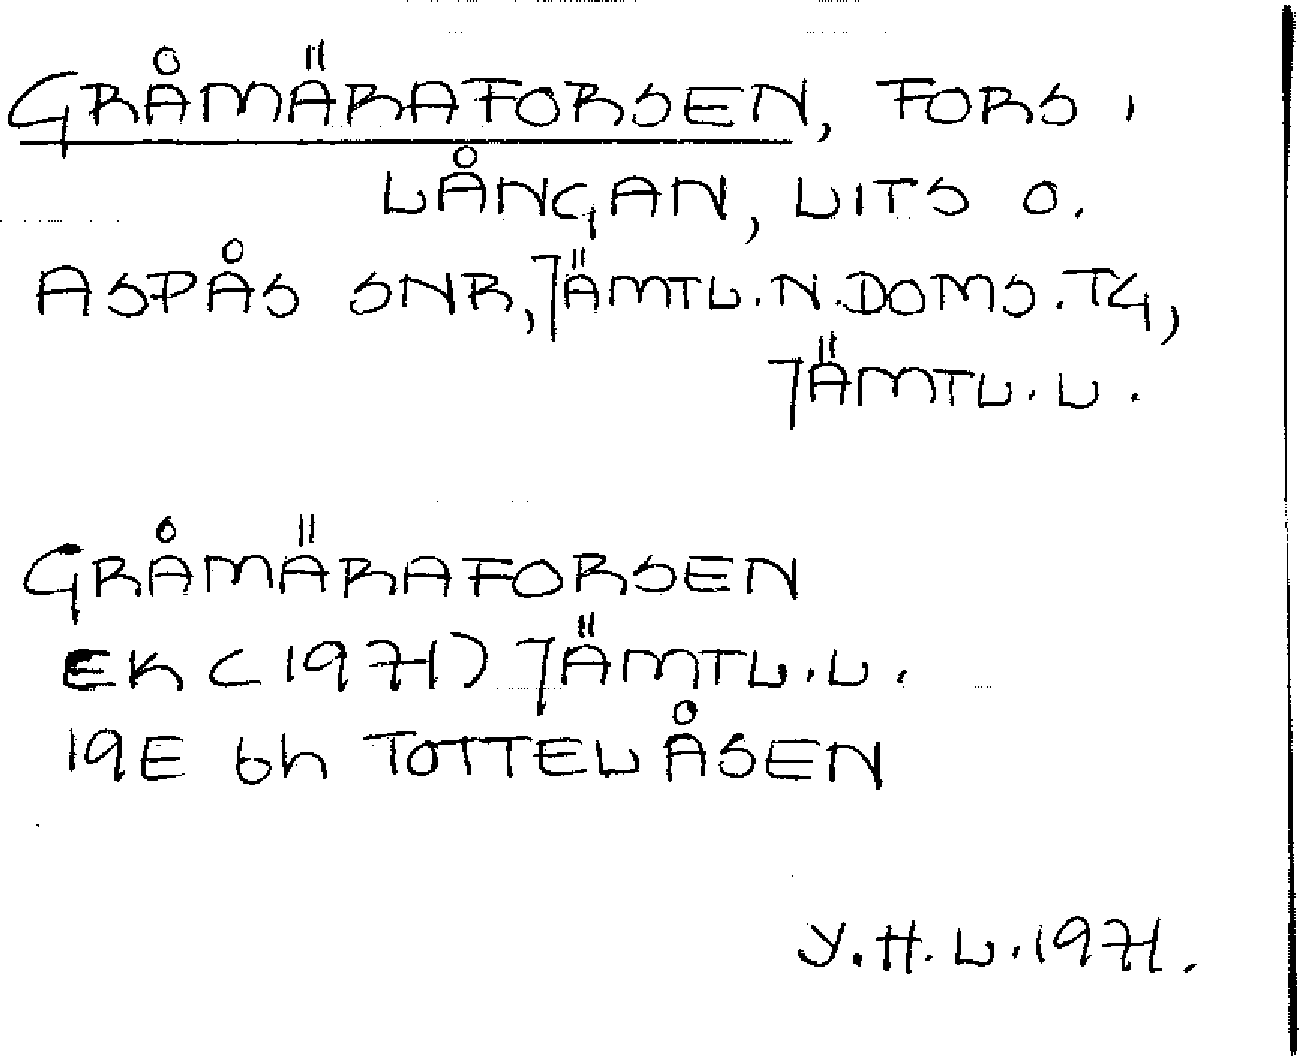 GRÅMÄRAFORSEN, FORS I
LÅNGAN, LITS O.
ASPÅS SNR, JÄMTL. N. DOMS. TG,
JÄMTL. L.
GRÅMÄRAFORSEN
EK (1971) JÄMTL. L.
19E 6h TOTTELÅSEN
Y. H. L. 1971.